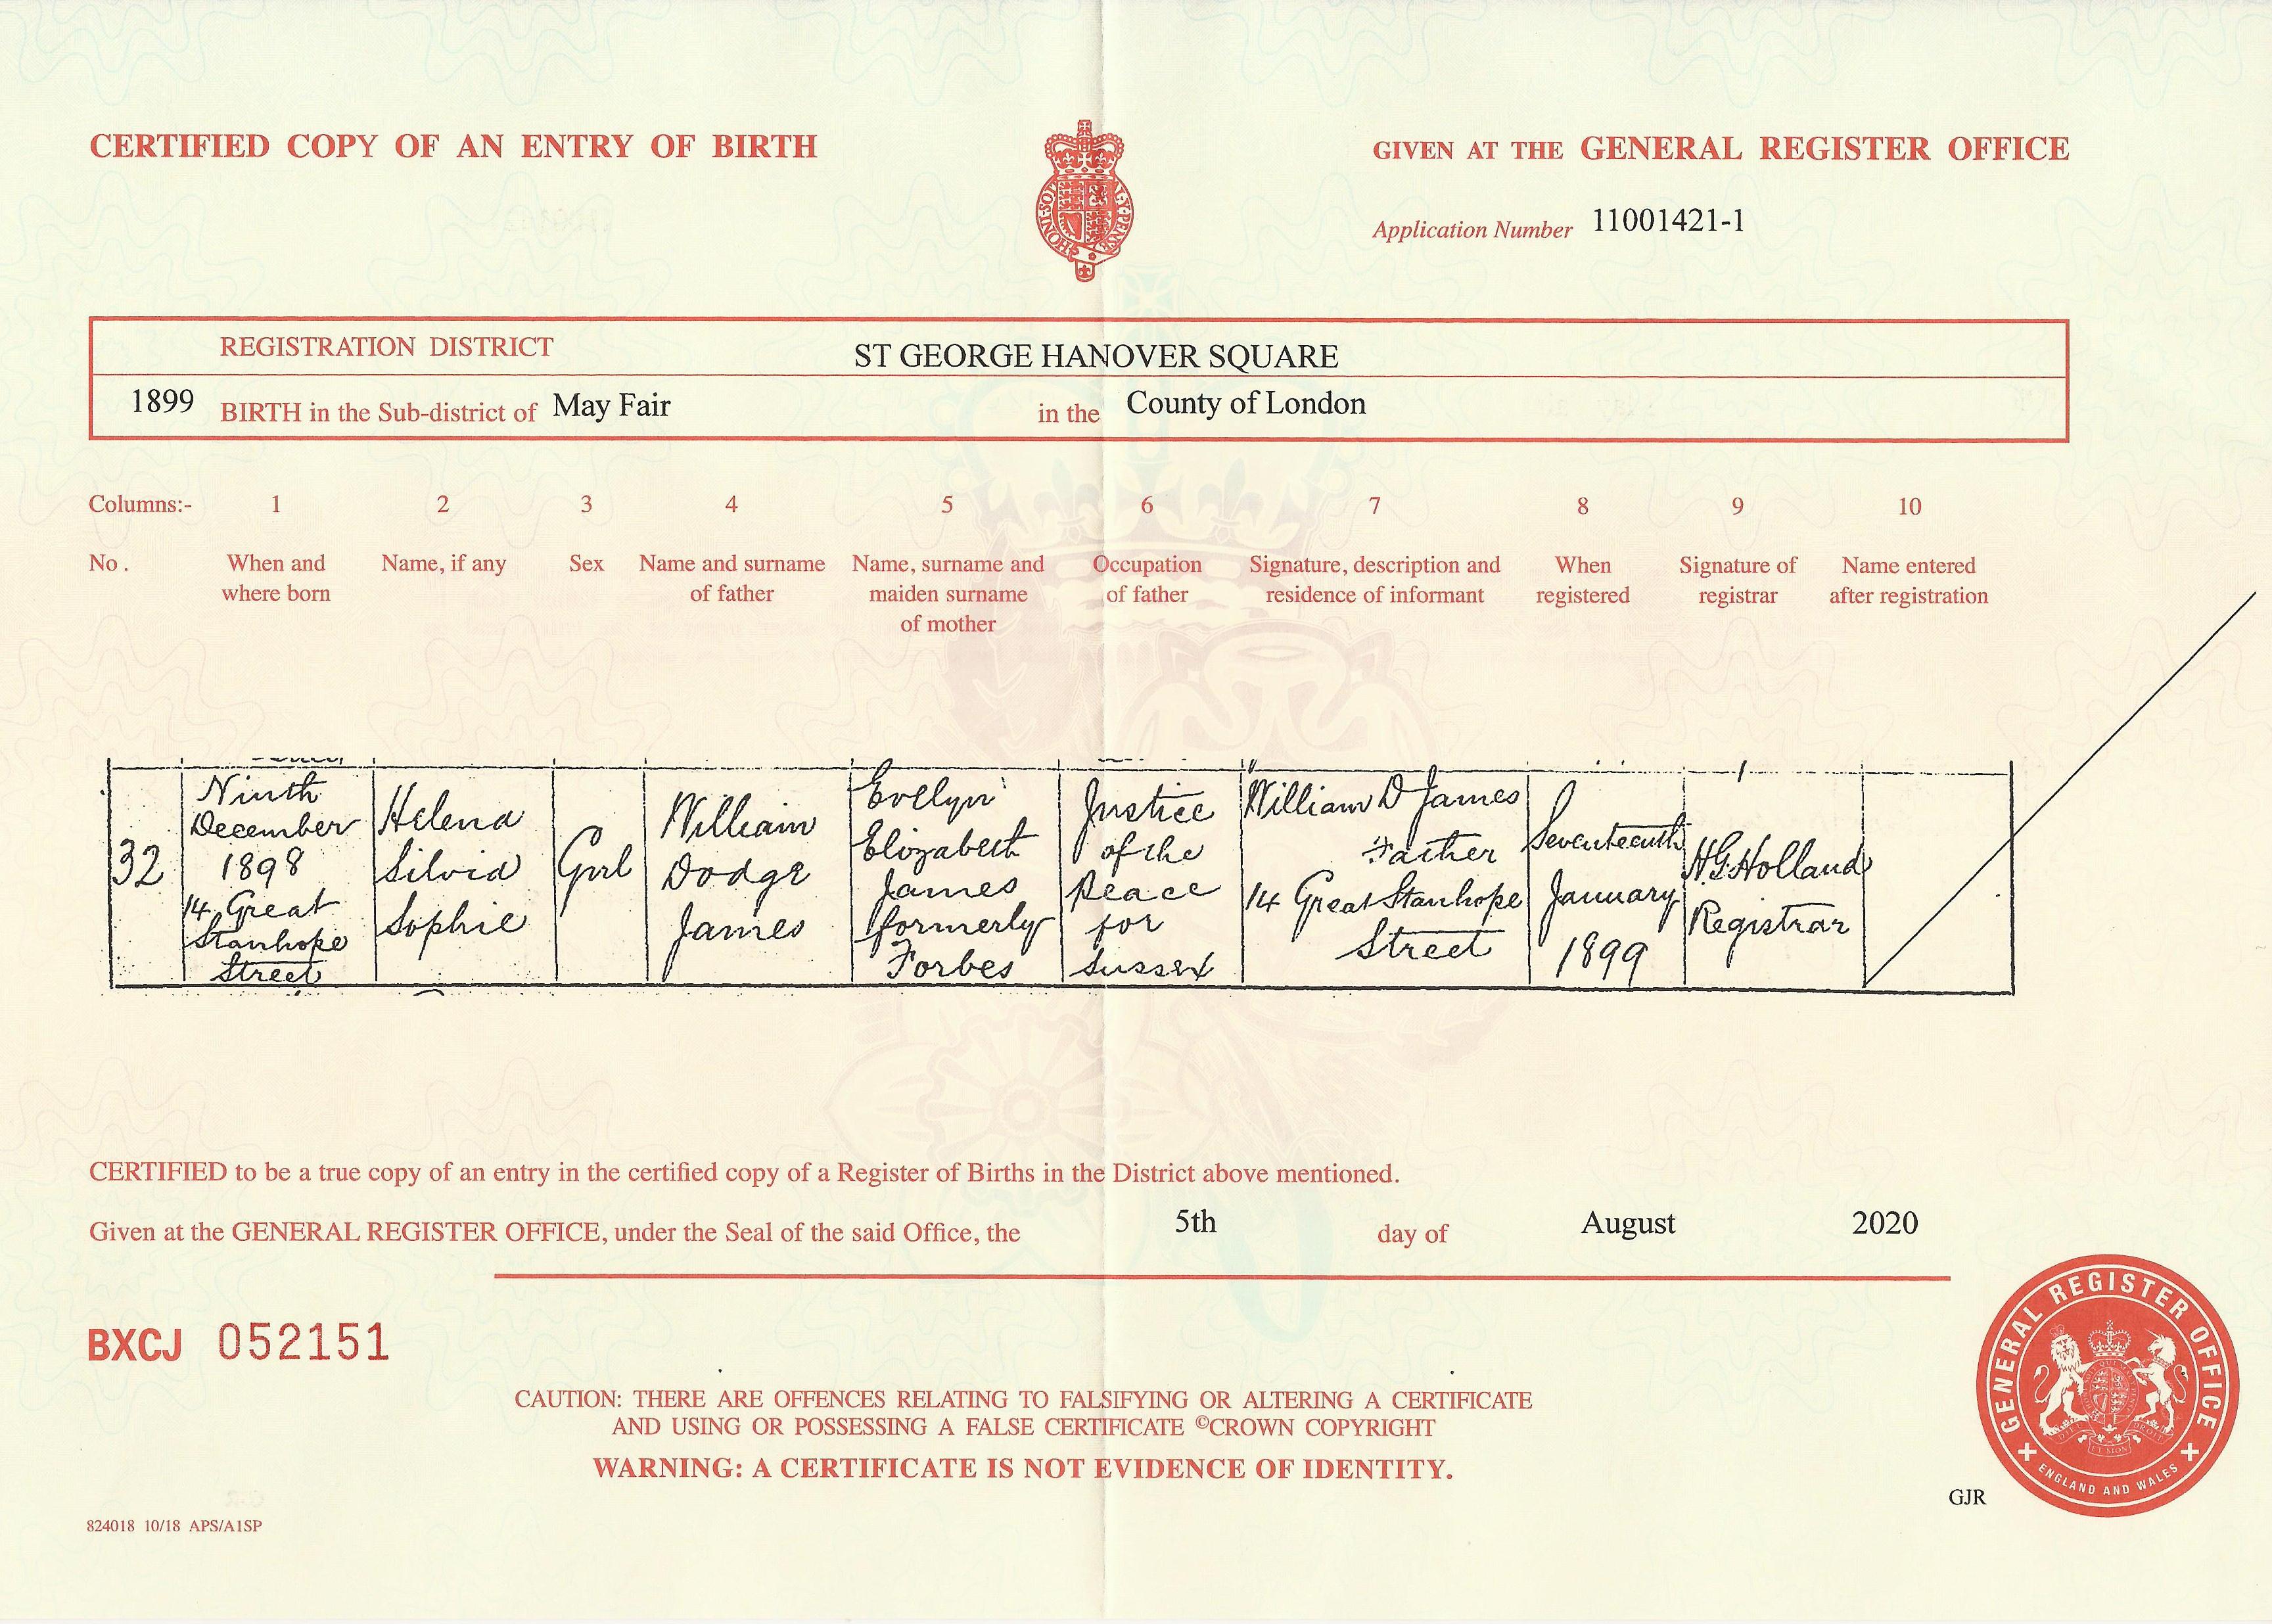 CERTIFIED COPY OF AN ENTRY OF BIRTH
GIVEN AT THE GENERAL REGISTER OFFICE
HONI·SOI Y·PENSE
Application Number 11001421-1
REGISTRATION DISTRICT ST GEORGE HANOVER SQUARE
1899 BIRTH in the Sub-district of May Fair in the County of London
Columns:- 1 2 3 4 5 6 7 8 9 10
No. When and where born
Name, if any
Sex
Name and surname of father
Name, surname and maiden surname of mother
Occupation of father
Signature, description and residence of informant
When registered
Signature of registrar
Name entered after registration
32
Ninth
December
1898
14 Great
Stanhope
Street
Helena
Silvia
Sophie
Girl
William
Dodge
James
Evelyn
Elizabeth
James
formerly
Forbes
Justice
of the
Peace
for
Sussex
William D James
Father
14 Great Stanhope
Street
Seventeenth
January
1899
H.G. Holland
Registrar
CERTIFIED to be a true copy of an entry in the certified copy of a Register of Births in the District above mentioned.
Given at the GENERAL REGISTER OFFICE, under the Seal of the said Office, the 5th day of August 2020
BXCJ 052151
CAUTION: THERE ARE OFFENCES RELATING TO FALSIFYING OR ALTERING A CERTIFICATE
AND USING OR POSSESSING A FALSE CERTIFICATE ©CROWN COPYRIGHT
WARNING: A CERTIFICATE IS NOT EVIDENCE OF IDENTITY.
GENERAL REGISTER OFFICE
ENGLAND AND WALES
GJR
824018 10/18 APS/A1SP